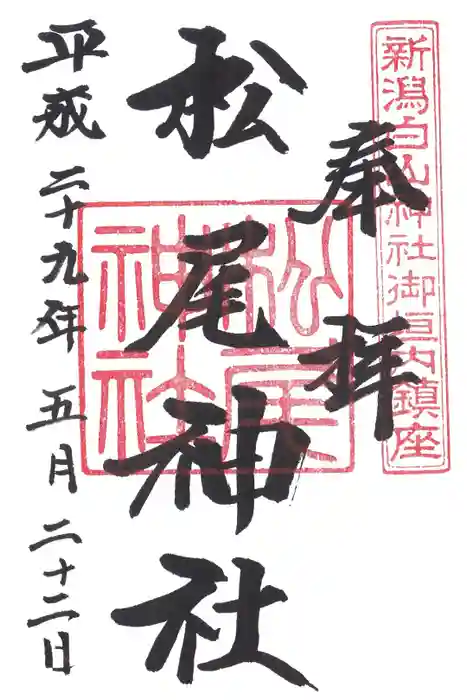 新潟白山神社御垣内鎮座
奉拝
松尾神社
松尾神社
平成二十九年五月二十二日